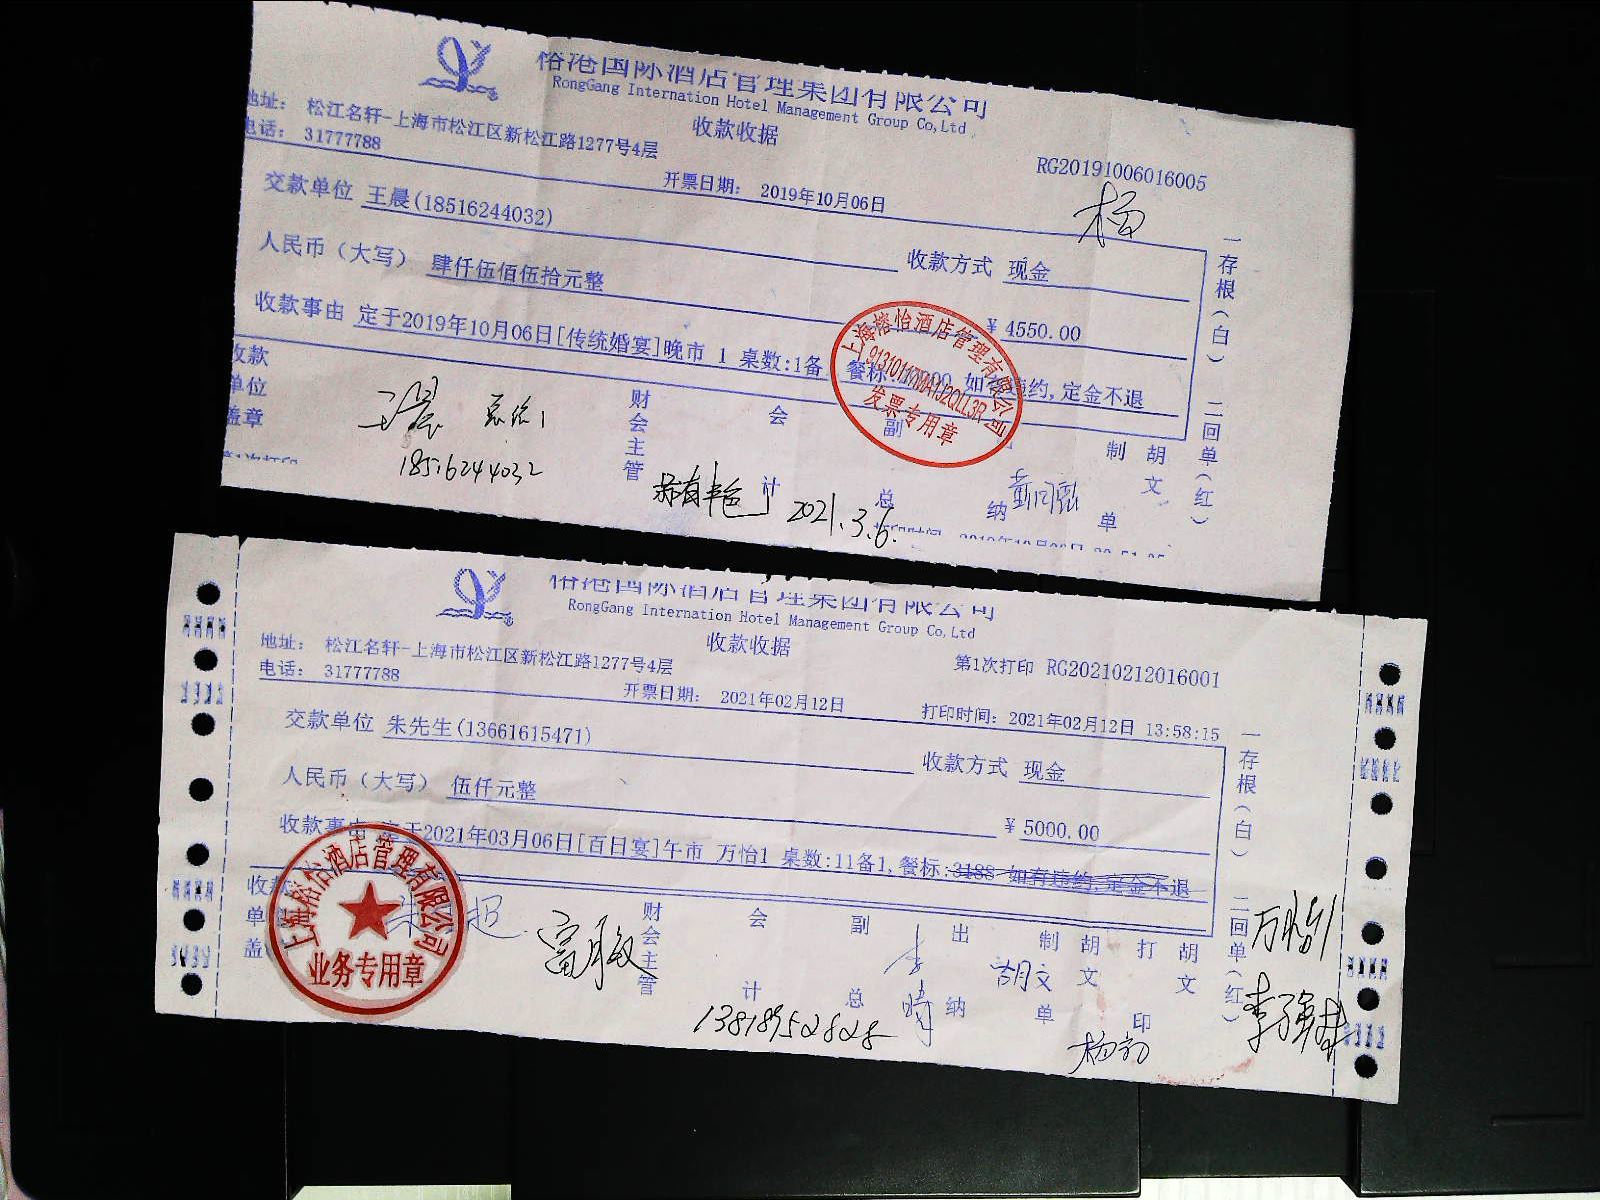 国际酒店管理集团有限公司
RongGang Internation Hotel Management Group Co,Ltd
收款收据
地址: 松江名轩-上海市松江区新松江路1277号4层
电话: 31777788
RG20191006016005
开票日期: 2019年10月06日
杨
交款单位 王晨(18516244032)
收款方式 现金
人民币（大写） 肆仟伍佰伍拾元整
¥ 4550.00
收款事由 定于2019年10月06日[传统婚宴]晚市 1 桌数:1备 餐标: 如有违约,定金不退
上海榕怡酒店管理有限公司
发票专用章
收款单位盖章
王晨
18516244032
财会主管
会计
副总
出纳
制单
胡文
2021.3.6.
一存根(白)
二回单(红)
国际酒店管理集团有限公司
RongGang Internation Hotel Management Group Co,Ltd
收款收据
地址: 松江名轩-上海市松江区新松江路1277号4层
电话: 31777788
第1次打印 RG20210212016001
开票日期: 2021年02月12日
打印时间: 2021年02月12日 13:58:15
交款单位 朱先生(13661615471)
收款方式 现金
人民币（大写） 伍仟元整
¥ 5000.00
收款事由 定于2021年03月06日[百日宴]午市 万怡1 桌数:11备1,餐标:3188 如有违约,定金不退
上海榕怡酒店管理有限公司
业务专用章
收款单位盖
朱超
财会主管
会计
副总
李晴
出纳
制单
胡文
胡文
打印
胡文
13818952828
一存根(白)
二回单(红)
万怡1